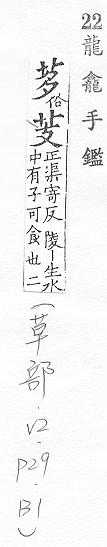 22 龍龕手鑑
茤俗芰正渠寄反陵｜生水
中有子可食也二
(草部.V2.P29.B1)